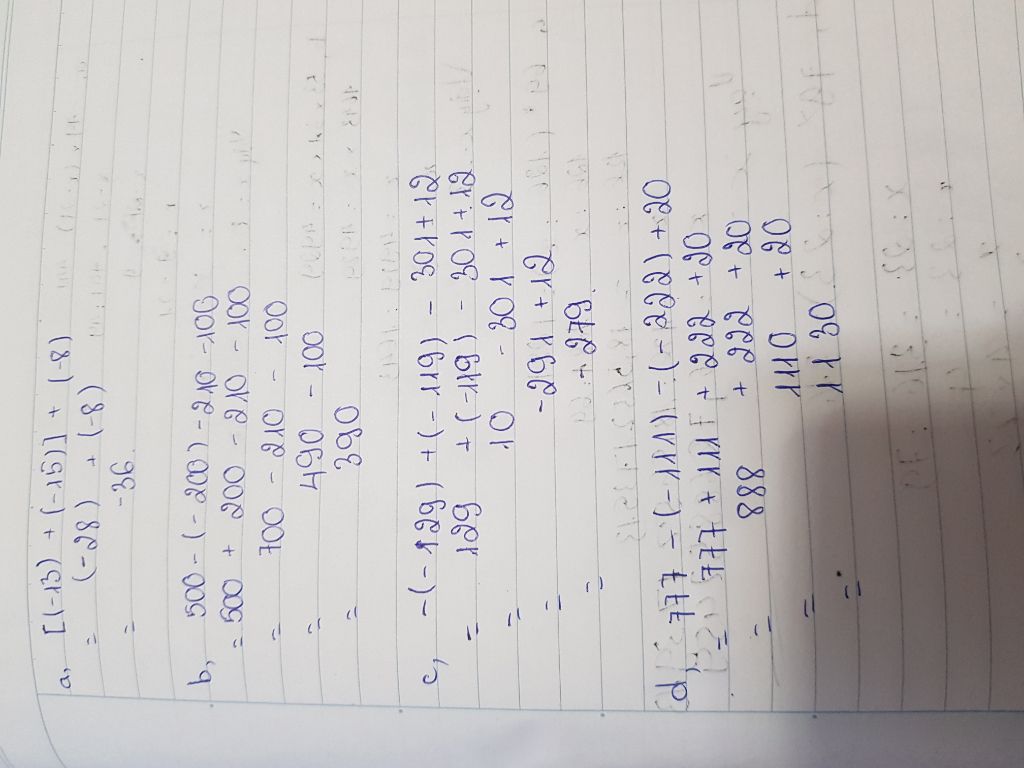 a, [(-13) + (-15)] + (-8)
= (-28) + (-8)
= -36
b, 500 - (-200) - 210 - 100
= 500 + 200 - 210 - 100
= 700 - 210 - 100
= 490 - 100
= 390
c, -(-129) + (-119) - 301 + 12
= 129 + (-119) - 301 + 12
= 10 - 301 + 12
= -291 + 12
= -279
d, 777 - (-111) - (-222) + 20
= 777 + 111 + 222 + 20
= 888 + 222 + 20
= 1110 + 20
= 1130